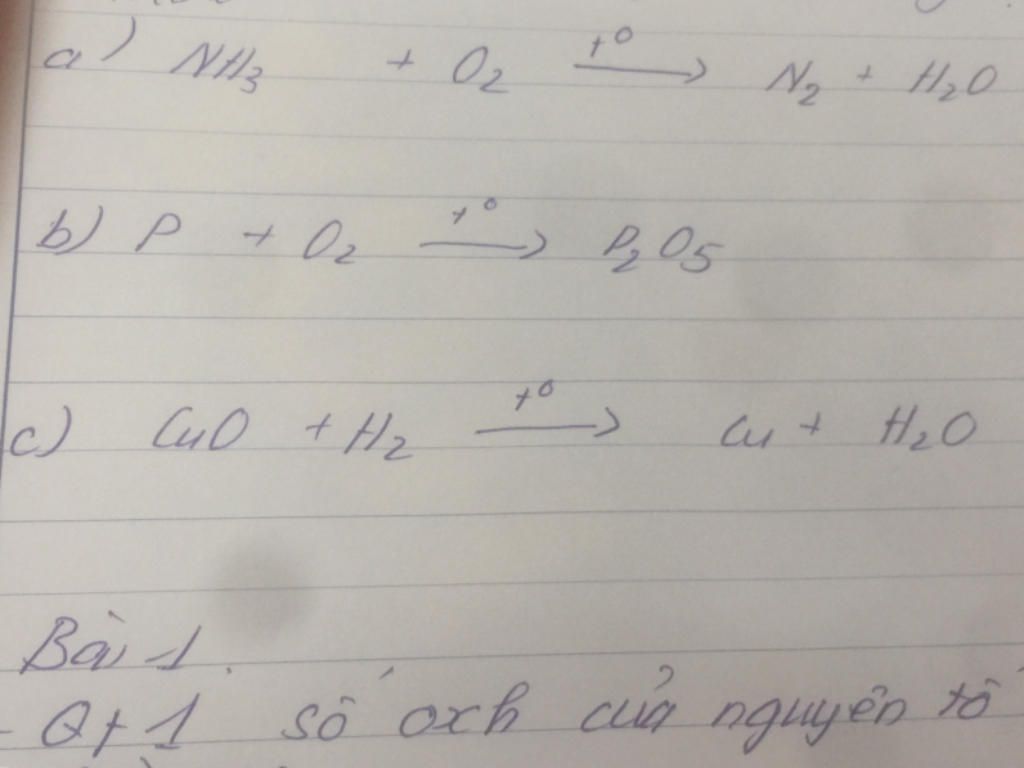 a) NH₃ + O₂ t⁰→ N₂ + H₂O
b) P + O₂ t⁰→ P₂O₅
c) CuO + H₂ t⁰→ Cu + H₂O
Bài 1.
- Qt 1 số oxh của nguyên tố